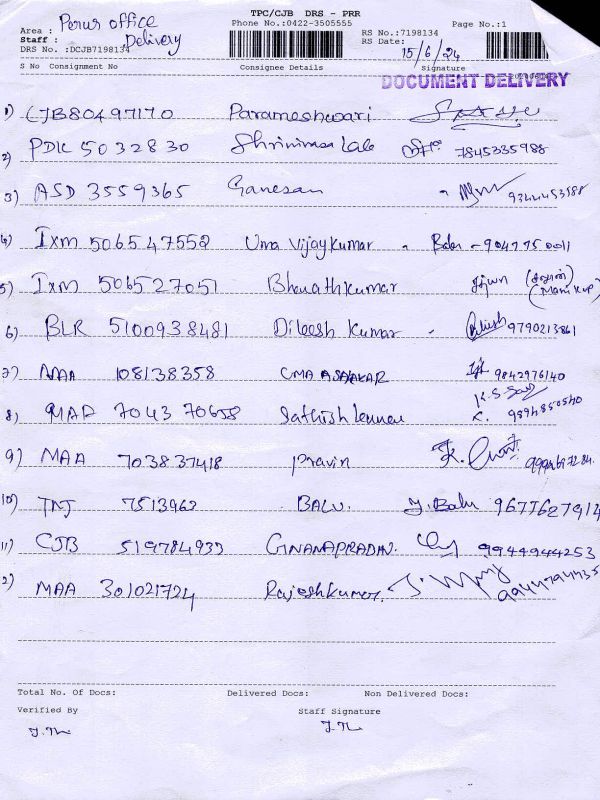 TPC/CJB DRS - PRR
Area : Perur office
Phone No.:0422-3505555
Page No.:1
Staff : Delivery
RS No.:7198134
DRS No. :DCJB7198134
RS Date: 15/6/24
S No Consignment No Consignee Details Signature
DOCUMENT DELIVERY
1) CJB80497170 Parameshwari
2) PDK 5032830 Shrinivasa Lab 7845335988
3) ASD 3559365 Ganesan 9344453588
4) Ixm 506547552 Uma Vijaykumar - Balu - 9047750011
5) Ixm 506527051 Bharathkumar
6) BLR 5100938481 Dileesh Kumar - 9790213861
7) MAA 108138358 UMA ASAKAR 9842976140
8) MAA 704370658 Sathish 9894850540
9) MAA 703837418 Pravin
10) TNJ 7513962 BALU. Y. Balu 9677627914
11) CJB 519784932 GNANAPRADIN. 9944944253
12) MAA 301021724 Rajeshkumar.
Total No. Of Docs: Delivered Docs: Non Delivered Docs:
Verified By Staff Signature